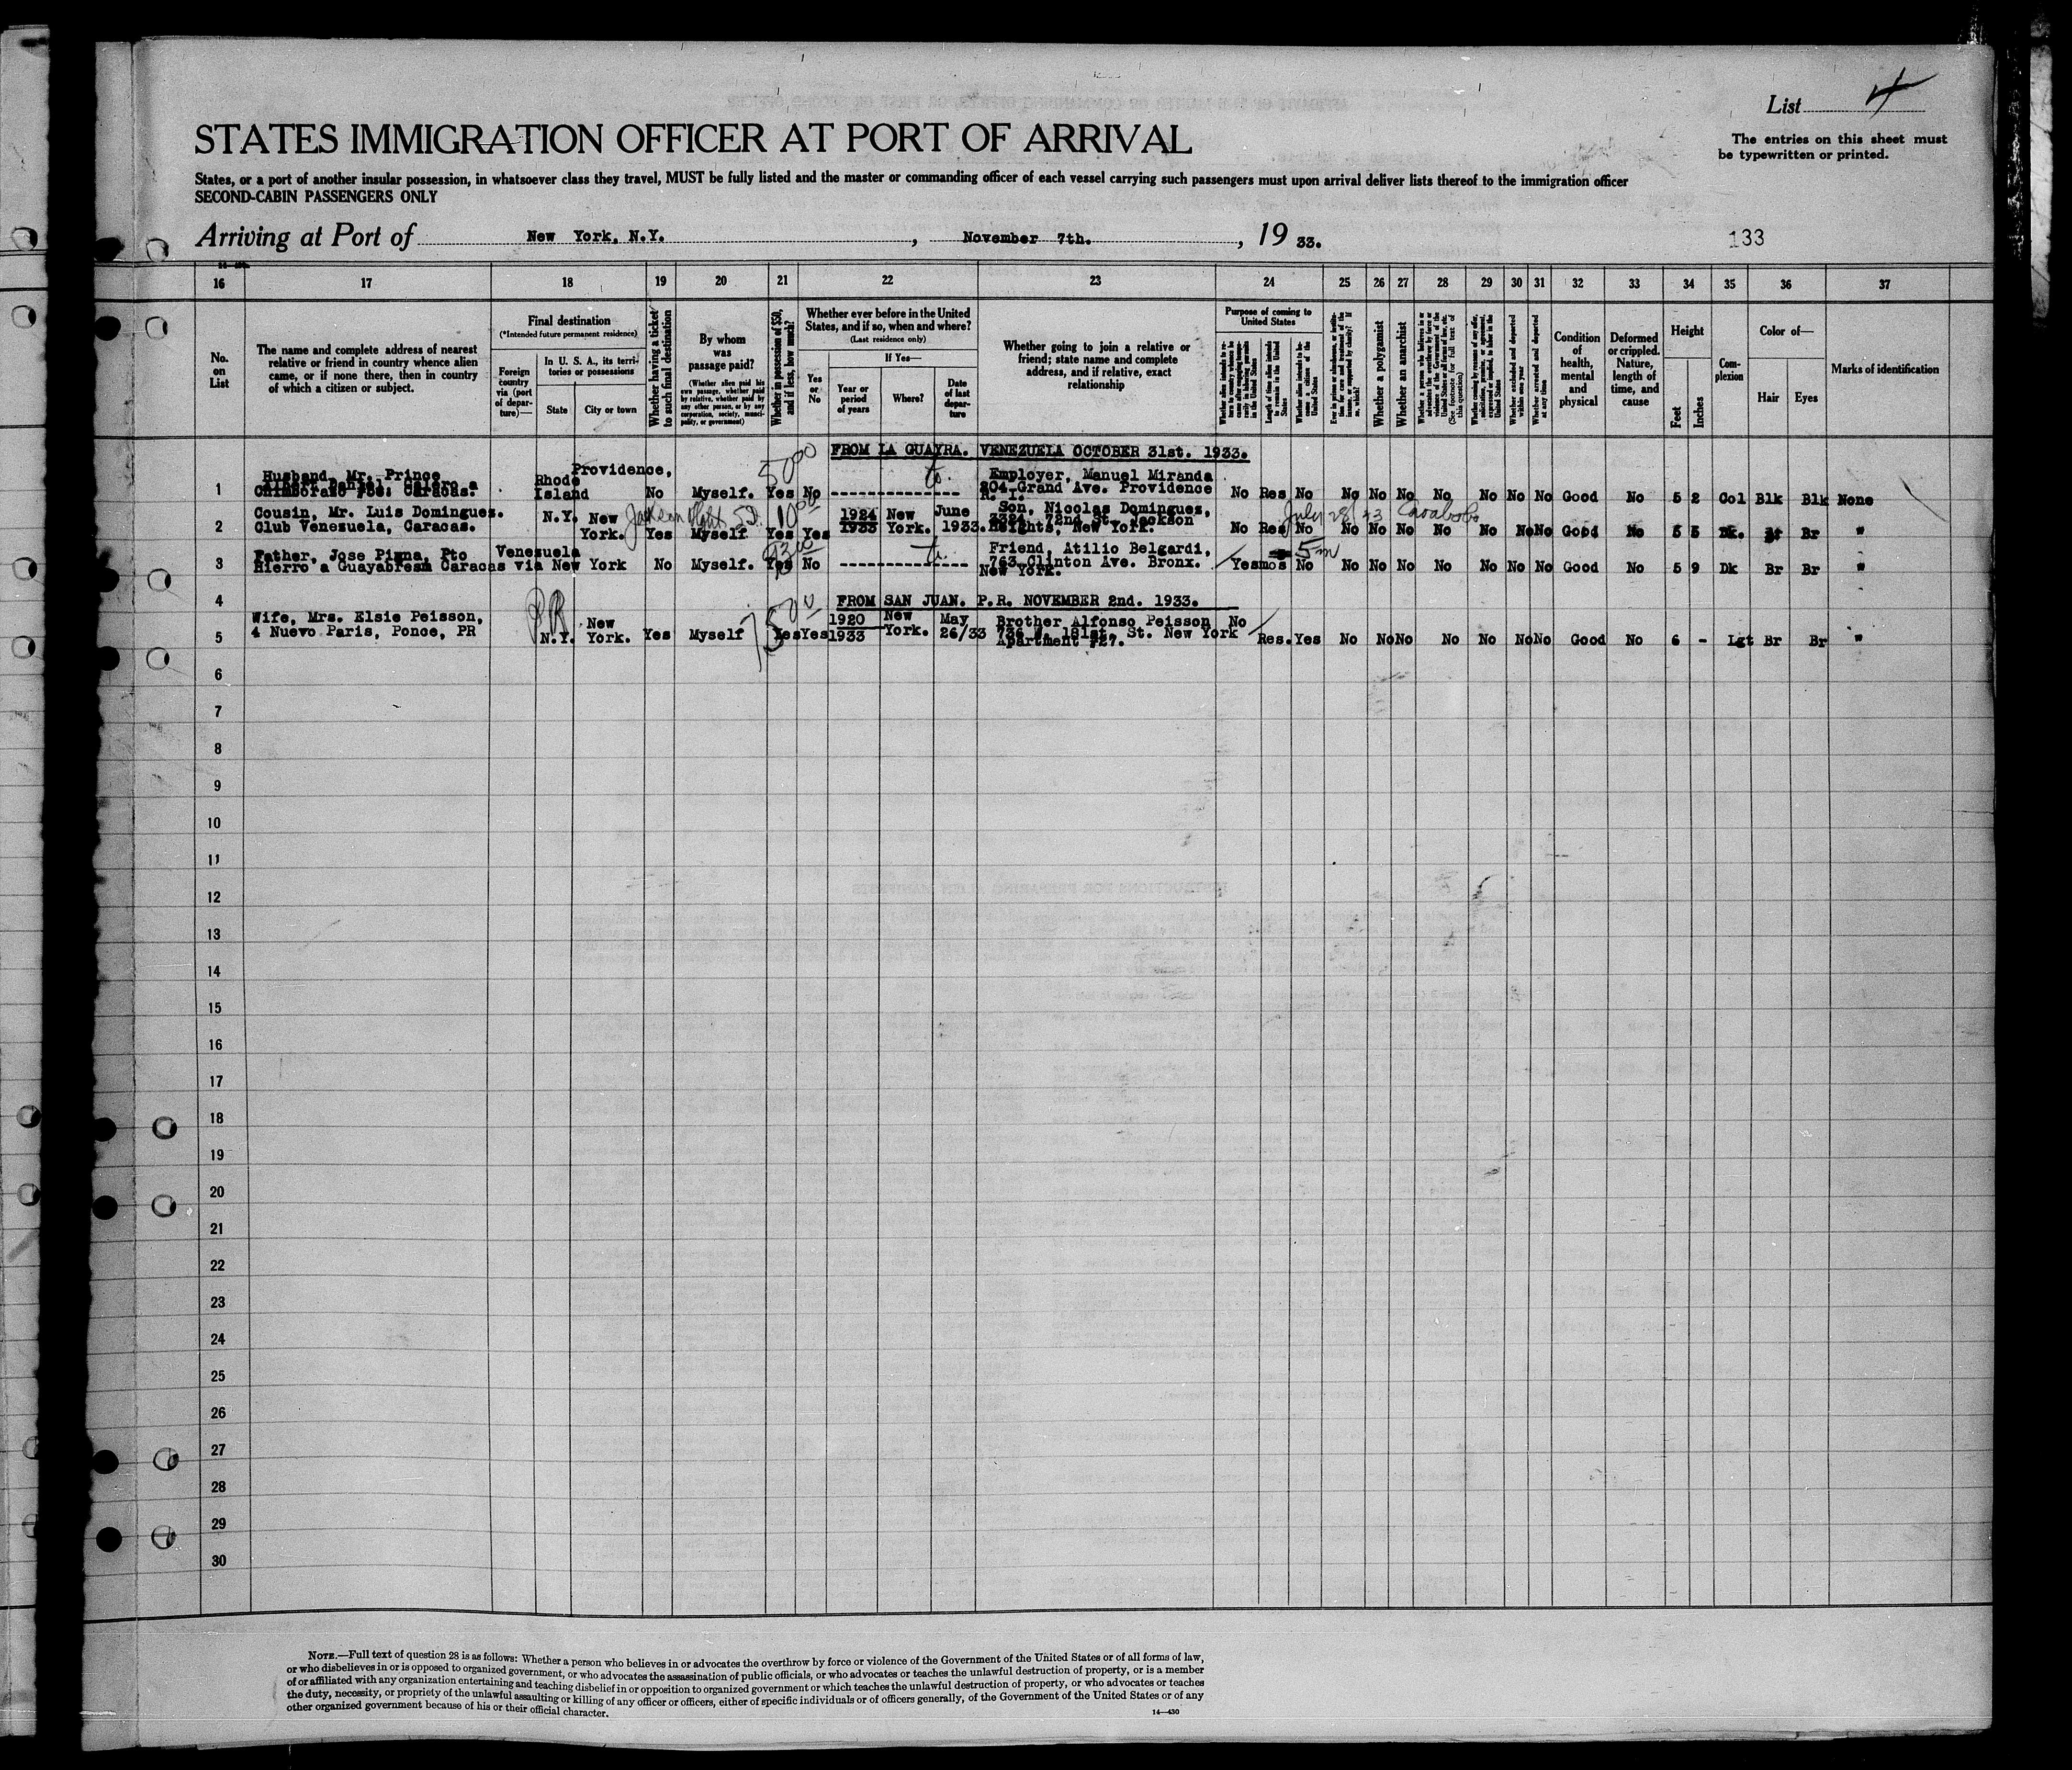 List 4
STATES IMMIGRATION OFFICER AT PORT OF ARRIVAL
The entries on this sheet must
be typewritten or printed.
States, or a port of another insular possession, in whatsoever class they travel, MUST be fully listed and the master or commanding officer of each vessel carrying such passengers must upon arrival deliver lists thereof to the immigration officer
SECOND-CABIN PASSENGERS ONLY
Arriving at Port of New York, N.Y. , November 7th. , 19 33.
133
16 17 18 19 20 21 22 23 24 25 26 27 28 29 30 31 32 33 34 35 36 37
No. on List
The name and complete address of nearest
relative or friend in country whence alien
came, or if none there, then in country
of which a citizen or subject.
Final destination
(*Intended future permanent residence)
Foreign country via (port of departure)—
In U. S. A., its territories or possessions
State
City or town
Whether having a ticket to such final destination
By whom was passage paid?
(Whether alien paid his own passage, whether paid by relative, whether paid by any other person, or by any corporation, society, municipality, or government)
Whether in possession of $50, and if less, how much?
Whether ever before in the United
States, and if so, when and where?
(Last residence only)
Yes or No
If Yes—
Year or period of years
Where?
Date of last departure
Whether going to join a relative or
friend; state name and complete
address, and if relative, exact
relationship
Purpose of coming to United States
Length of time alien intends to remain in the United States
Whether alien intends to become a citizen of the United States
Whether a polygamist
Whether an anarchist
Whether arrested and deported at any time
Condition of health, mental and physical
Deformed or crippled. Nature, length of time, and cause
Height
Feet
Inches
Complexion
Color of—
Hair
Eyes
Marks of identification
FROM LA GUAYRA. VENEZUELA OCTOBER 31st. 1933.
1 Husband, Mr. Prince
Caracas.
Rhode Island Providence, No Myself. Yes No 50.00
Employer, Manuel Miranda
204 Grand Ave. Providence
R. I.
No Res No No No No No No No No Good No 5 2 Col Blk Blk None
2 Cousin, Mr. Luis Domingues.
Club Venezuela, Caracas.
N.Y. New York. Yes Myself Yes Yes 1924 1933 New York. June 1933.
Son, Nicolas Dominguez,
72nd St. Jackson
Heights, New York.
No Res No No No No No No No No Good No 5 5 Dk. Br Br "
3 Father, Jose Pigna, Pto
Hierro a Guayabresa Caracas
Venezuela via New York No Myself. Yes No
Friend, Atilio Belgardi,
763 Clinton Ave. Bronx.
New York.
5 m
Yes mos No No No No No No No No Good No 5 9 Dk Br Br "
4 FROM SAN JUAN. P.R. NOVEMBER 2nd. 1933.
5 Wife, Mrs. Elsie Peisson,
4 Nuevo Paris, Ponce, PR
PR N.Y. New York. Yes Myself Yes Yes 1920 1933 New York. May 26/33
Brother Alfonso Peisson
736 W. 181st. St. New York
Apartment #27.
No Res. Yes No No No No No No No Good No 6 - Lgt Br Br "
6
7
8
9
10
11
12
13
14
15
16
17
18
19
20
21
22
23
24
25
26
27
28
29
30
NOTE.—Full text of question 28 is as follows: Whether a person who believes in or advocates the overthrow by force or violence of the Government of the United States or of all forms of law,
or who disbelieves in or is opposed to organized government, or who advocates the assassination of public officials, or who advocates or teaches the unlawful destruction of property, or is a member
of or affiliated with any organization entertaining and teaching disbelief in or opposition to organized government or which teaches the unlawful destruction of property, or who advocates or teaches
the duty, necessity, or propriety of the unlawful assaulting or killing of any officer or officers, either of specific individuals or of officers generally, of the Government of the United States or of any
other organized government because of his or their official character.
14—430